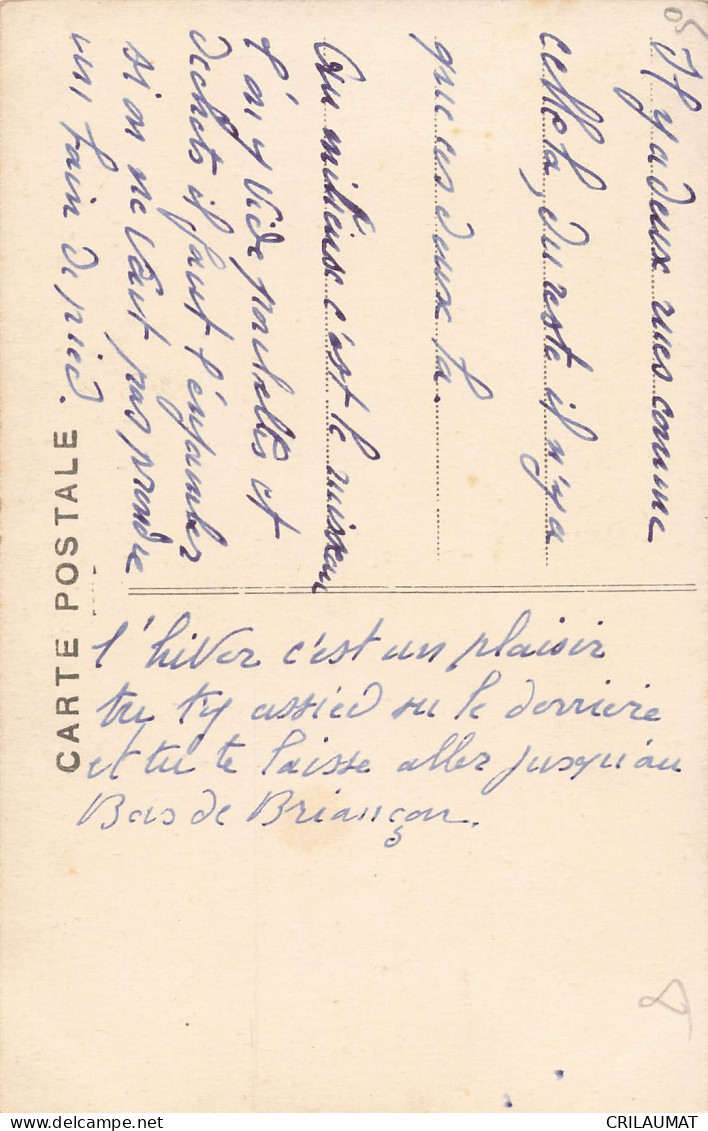 05
Il y a deux rues comme
celle la, du reste il n'y a
que ces deux la.
Au milieux c'est le ruisseau
l'on y vide poubelles et
dechets il faut l'enjamber
si on ne veut pas prendre
un bain de pied.
CARTE POSTALE
l'hiver c'est un plaisir
tu t'y assied su le derriere
et tu te laisse aller jusqu'au
Bas de Briançon.
8
CRILAUMAT